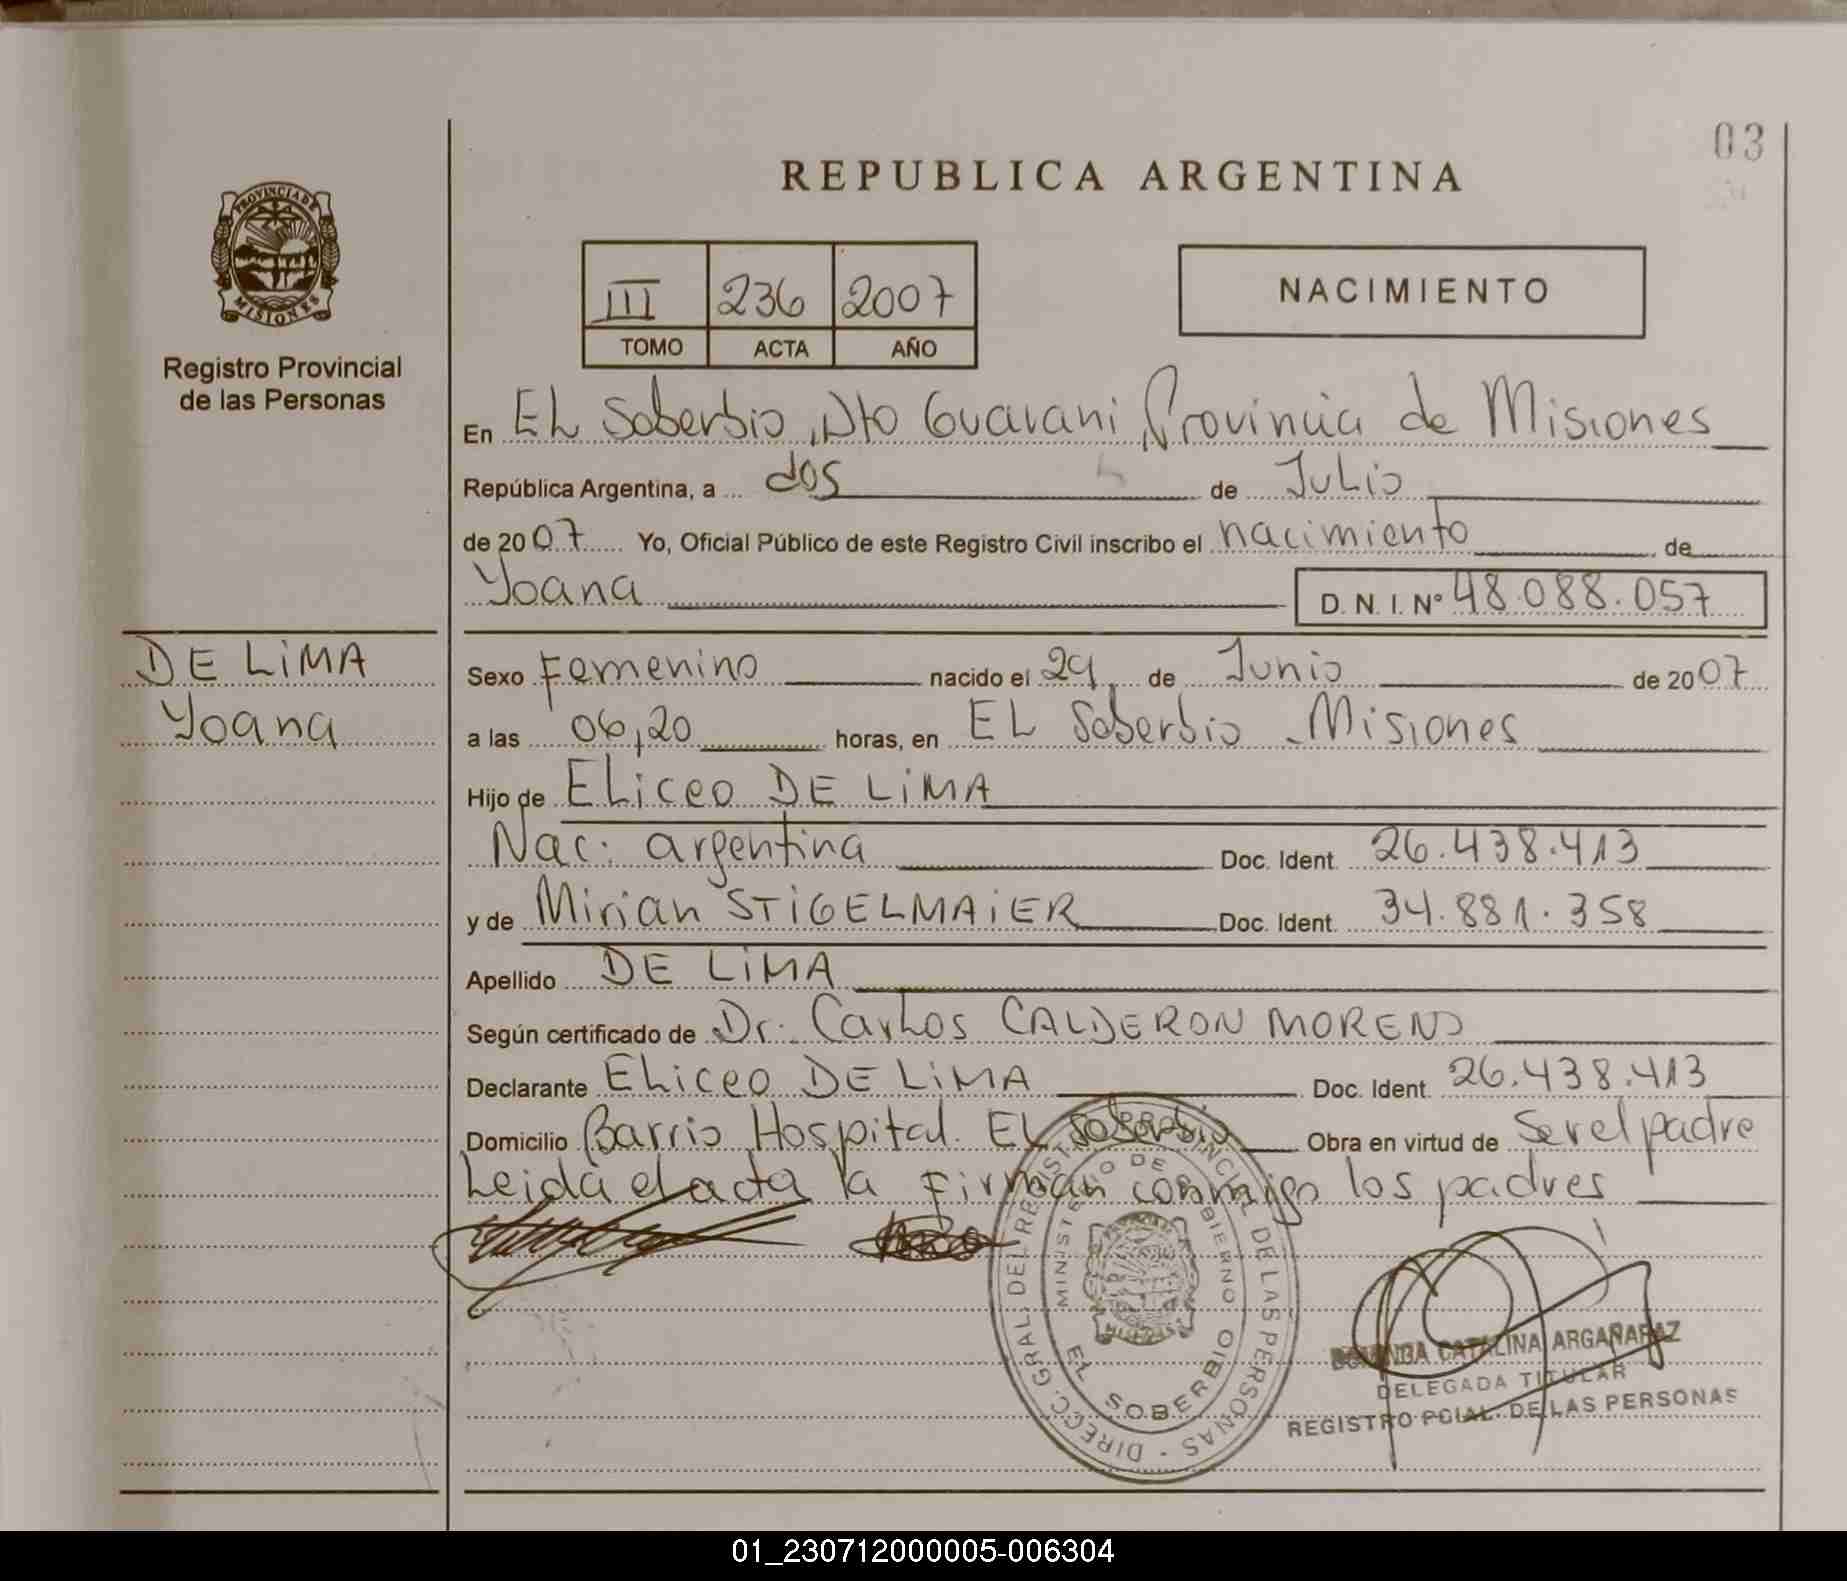 03
REPUBLICA ARGENTINA
PROVINCIA DE
MISIONES
Registro Provincial
de las Personas
III 236 2007
TOMO ACTA AÑO
NACIMIENTO
En EL Soberbio, Dto Guarani, Provincia de Misiones
República Argentina, a dos de Julio
de 2007 Yo, Oficial Público de este Registro Civil inscribo el nacimiento de
Yoana D. N. I. Nº 48.088.057
DE LiMA
Yoana
Sexo Femenino nacido el 29 de Junio de 2007
a las 06,20 horas, en EL Soberbio - Misiones
Hijo de Eliceo DE LiMA
Nac. argentina Doc. Ident. 26.438.413
y de Mirian STiGELMAiER Doc. Ident. 34.881.358
Apellido DE LiMA
Según certificado de Dr. Carlos CALDERON MORENO
Declarante Eliceo DE LiMA Doc. Ident. 26.438.413
Domicilio Barrio Hospital. EL Soberbio Obra en virtud de Ser el padre
Leida el acta la Firman conmigo los padres
DIRECC. GRAL. DEL REGISTRO PROVINCIAL DE LAS PERSONAS
MINISTERIO DE GOBIERNO
EL SOBERBIO
CATALINA ARGAÑARAZ
DELEGADA TITULAR
REGISTRO PCIAL. DE LAS PERSONAS
01_230712000005-006304